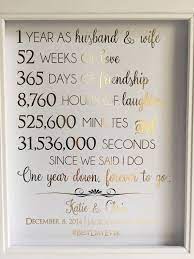 1 YEAR AS husband & wife
52 WEEKS OF love
365 DAYS OF friendship
8,760 HOURS OF laughter
525,600 MINUTES and
31,536,000 SECONDS
SINCE WE SAID I DO
One year down, forever to go.
Katie & Chris
DECEMBER 8, 2014
#BESTDAYEVER